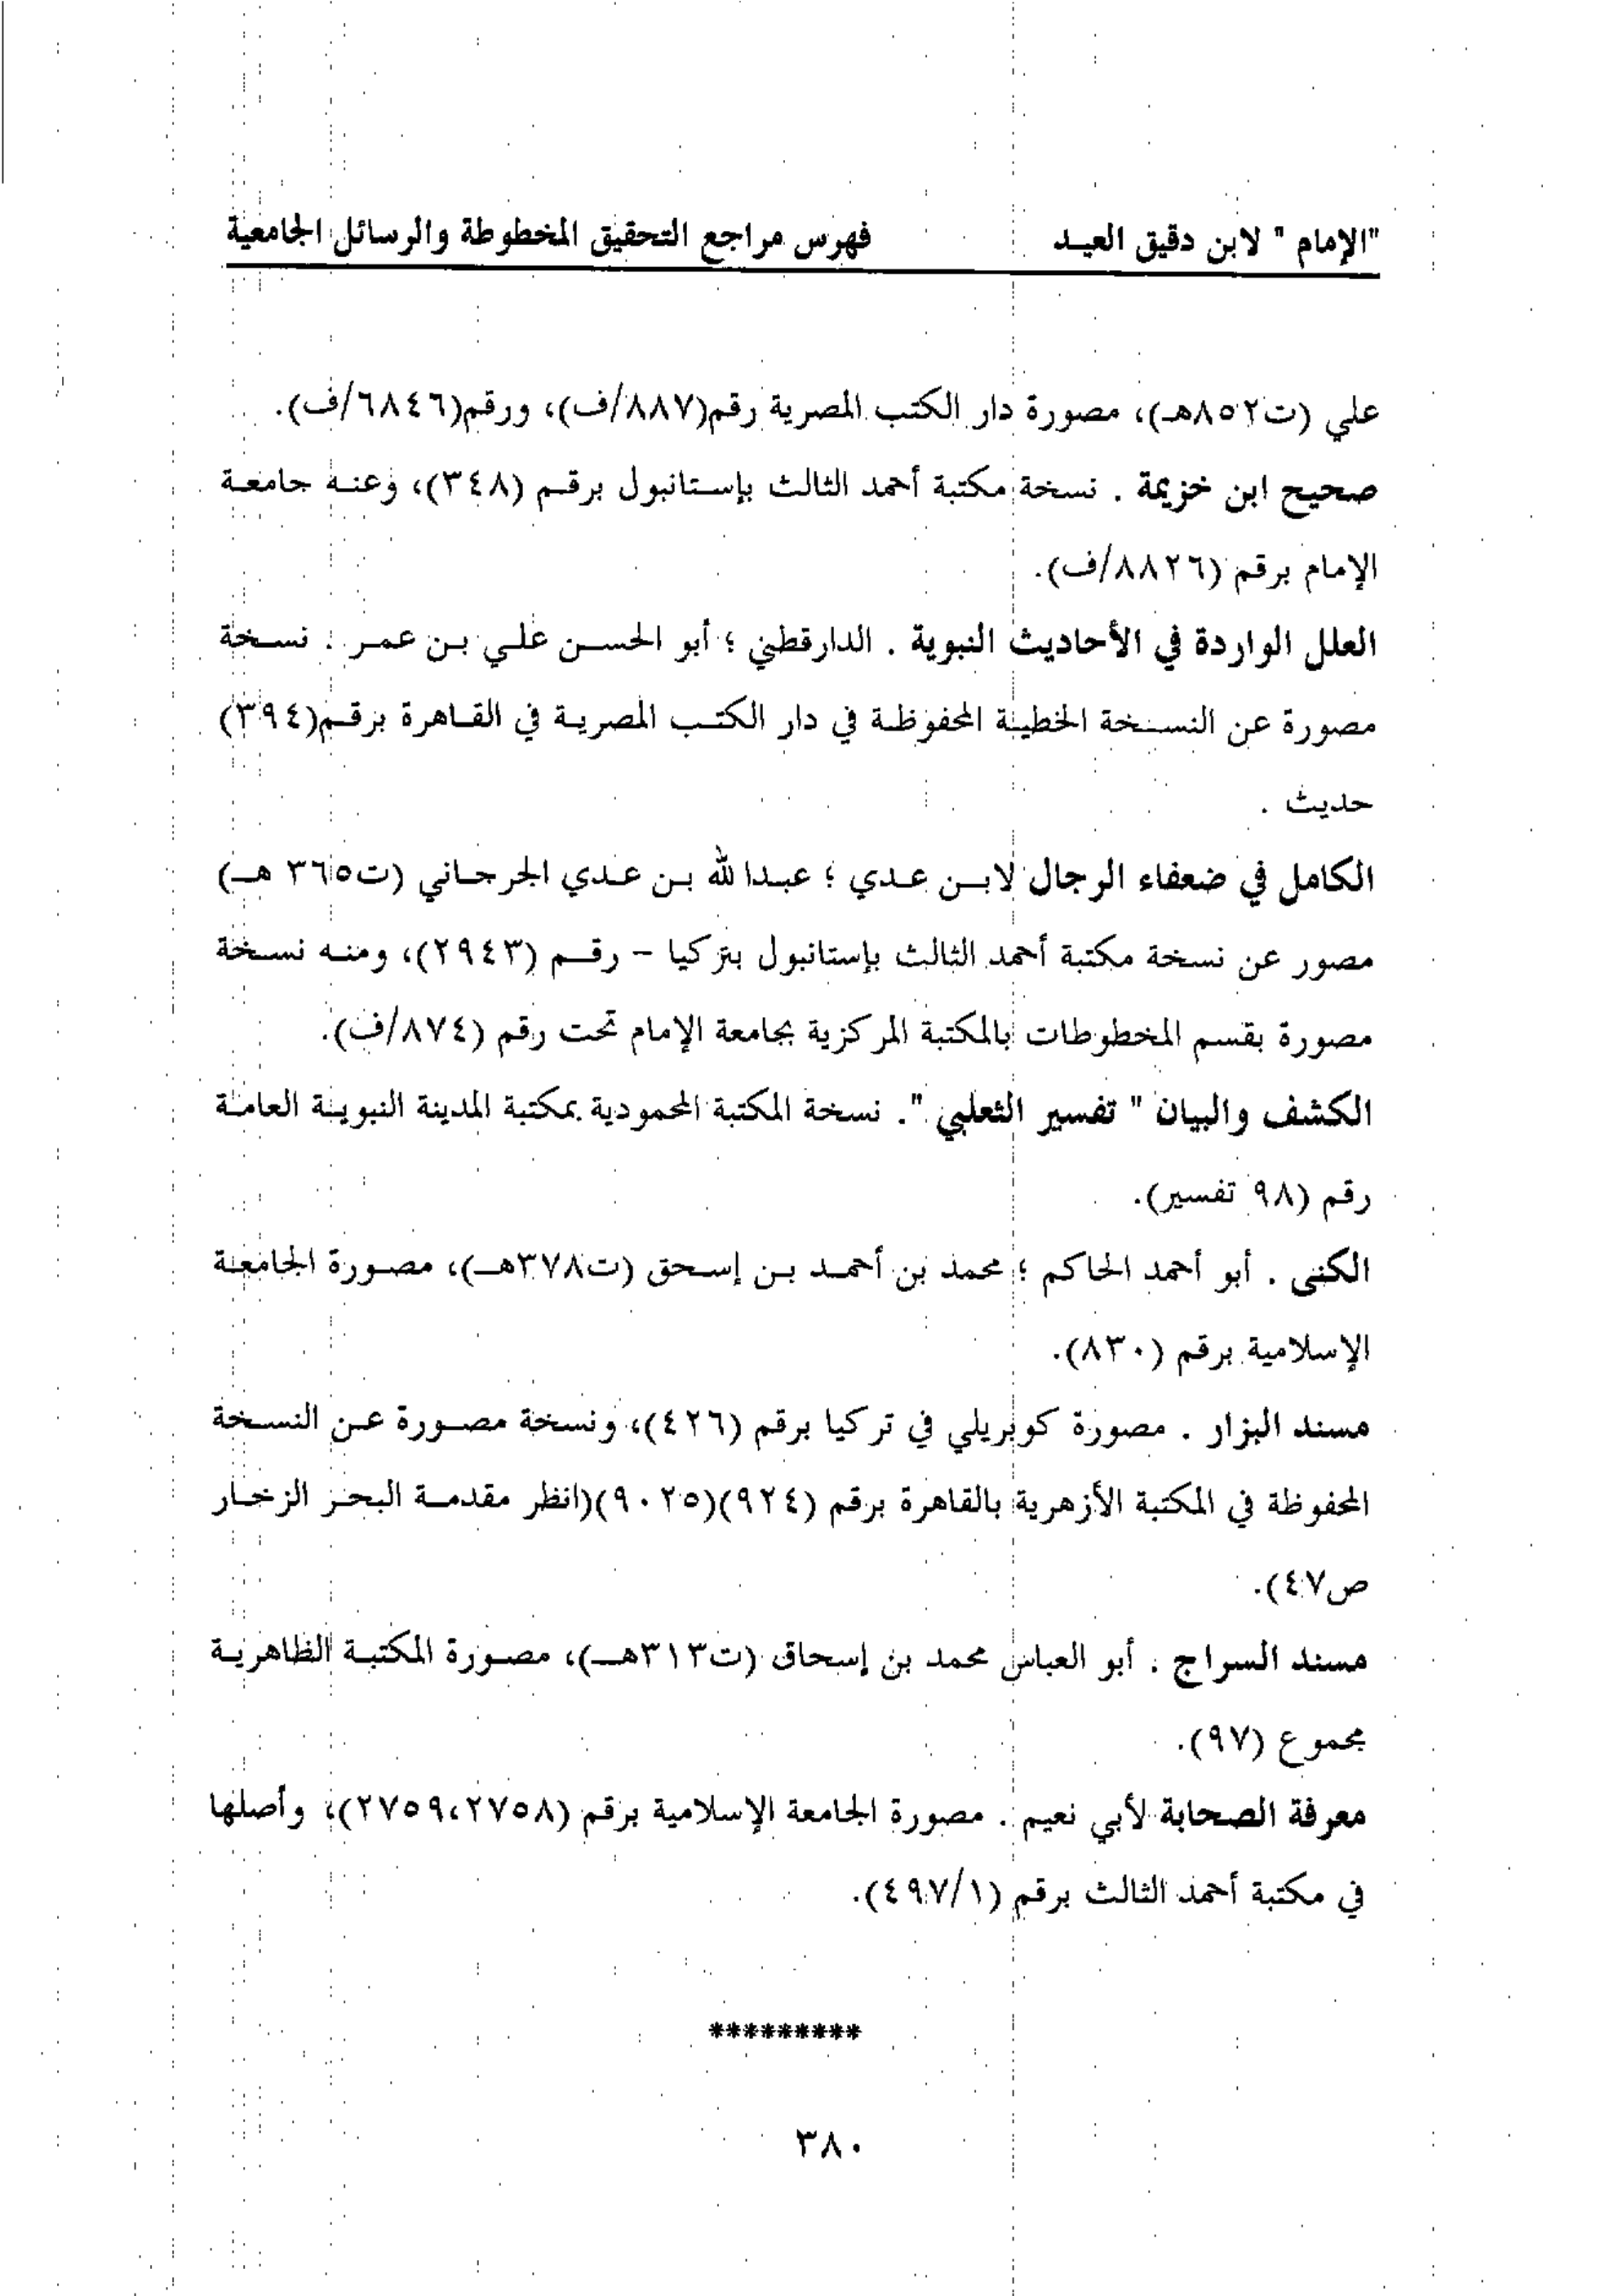 "الإمام" لابن دقيق العيد فهرس مراجع التحقيق المخطوطة والرسائل الجامعية
علي (ت٨٥٢هـ)، مصورة دار الكتب المصرية رقم(٨٨٧/ف)، ورقم(٦٨٤٦/ف).
صحيح ابن خزيمة . نسخة مكتبة أحمد الثالث بإستانبول برقم (٣٤٨)، وعنه جامعة
الإمام برقم (٨٨٢٦/ف).
العلل الواردة في الأحاديث النبوية . الدارقطني ؛ أبو الحسن علي بن عمر . نسخة
مصورة عن النسخة الخطية المحفوظة في دار الكتب المصرية في القاهرة برقم(٣٩٤)
حديث .
الكامل في ضعفاء الرجال لابن عدي ؛ عبدالله بن عدي الجرجاني (ت٣٦٥ هـ)
مصور عن نسخة مكتبة أحمد الثالث بإستانبول بتركيا - رقم (٢٩٤٣)، ومنه نسخة
مصورة بقسم المخطوطات بالمكتبة المركزية بجامعة الإمام تحت رقم (٨٧٤/ف).
الكشف والبيان " تفسير الثعلبي ". نسخة المكتبة المحمودية بمكتبة المدينة النبوية العامة
رقم (٩٨ تفسير).
الكنى . أبو أحمد الحاكم ؛ محمد بن أحمد بن إسحق (ت٣٧٨هـ)، مصورة الجامعة
الإسلامية برقم (٨٣٠).
مسند البزار . مصورة كوبريلي في تركيا برقم (٤٢٦)، ونسخة مصورة عن النسخة
المحفوظة في المكتبة الأزهرية بالقاهرة برقم (٩٢٤)(٩٠٢٥)(انظر مقدمة البحر الزخار
ص٤٧).
مسند السراج . أبو العباس محمد بن إسحاق (ت٣١٣هـ)، مصورة المكتبة الظاهرية
مجموع (٩٧).
معرفة الصحابة لأبي نعيم . مصورة الجامعة الإسلامية برقم (٢٧٥٨،٢٧٥٩)، وأصلها
في مكتبة أحمد الثالث برقم (٤٩٧/١).
*********
٣٨٠